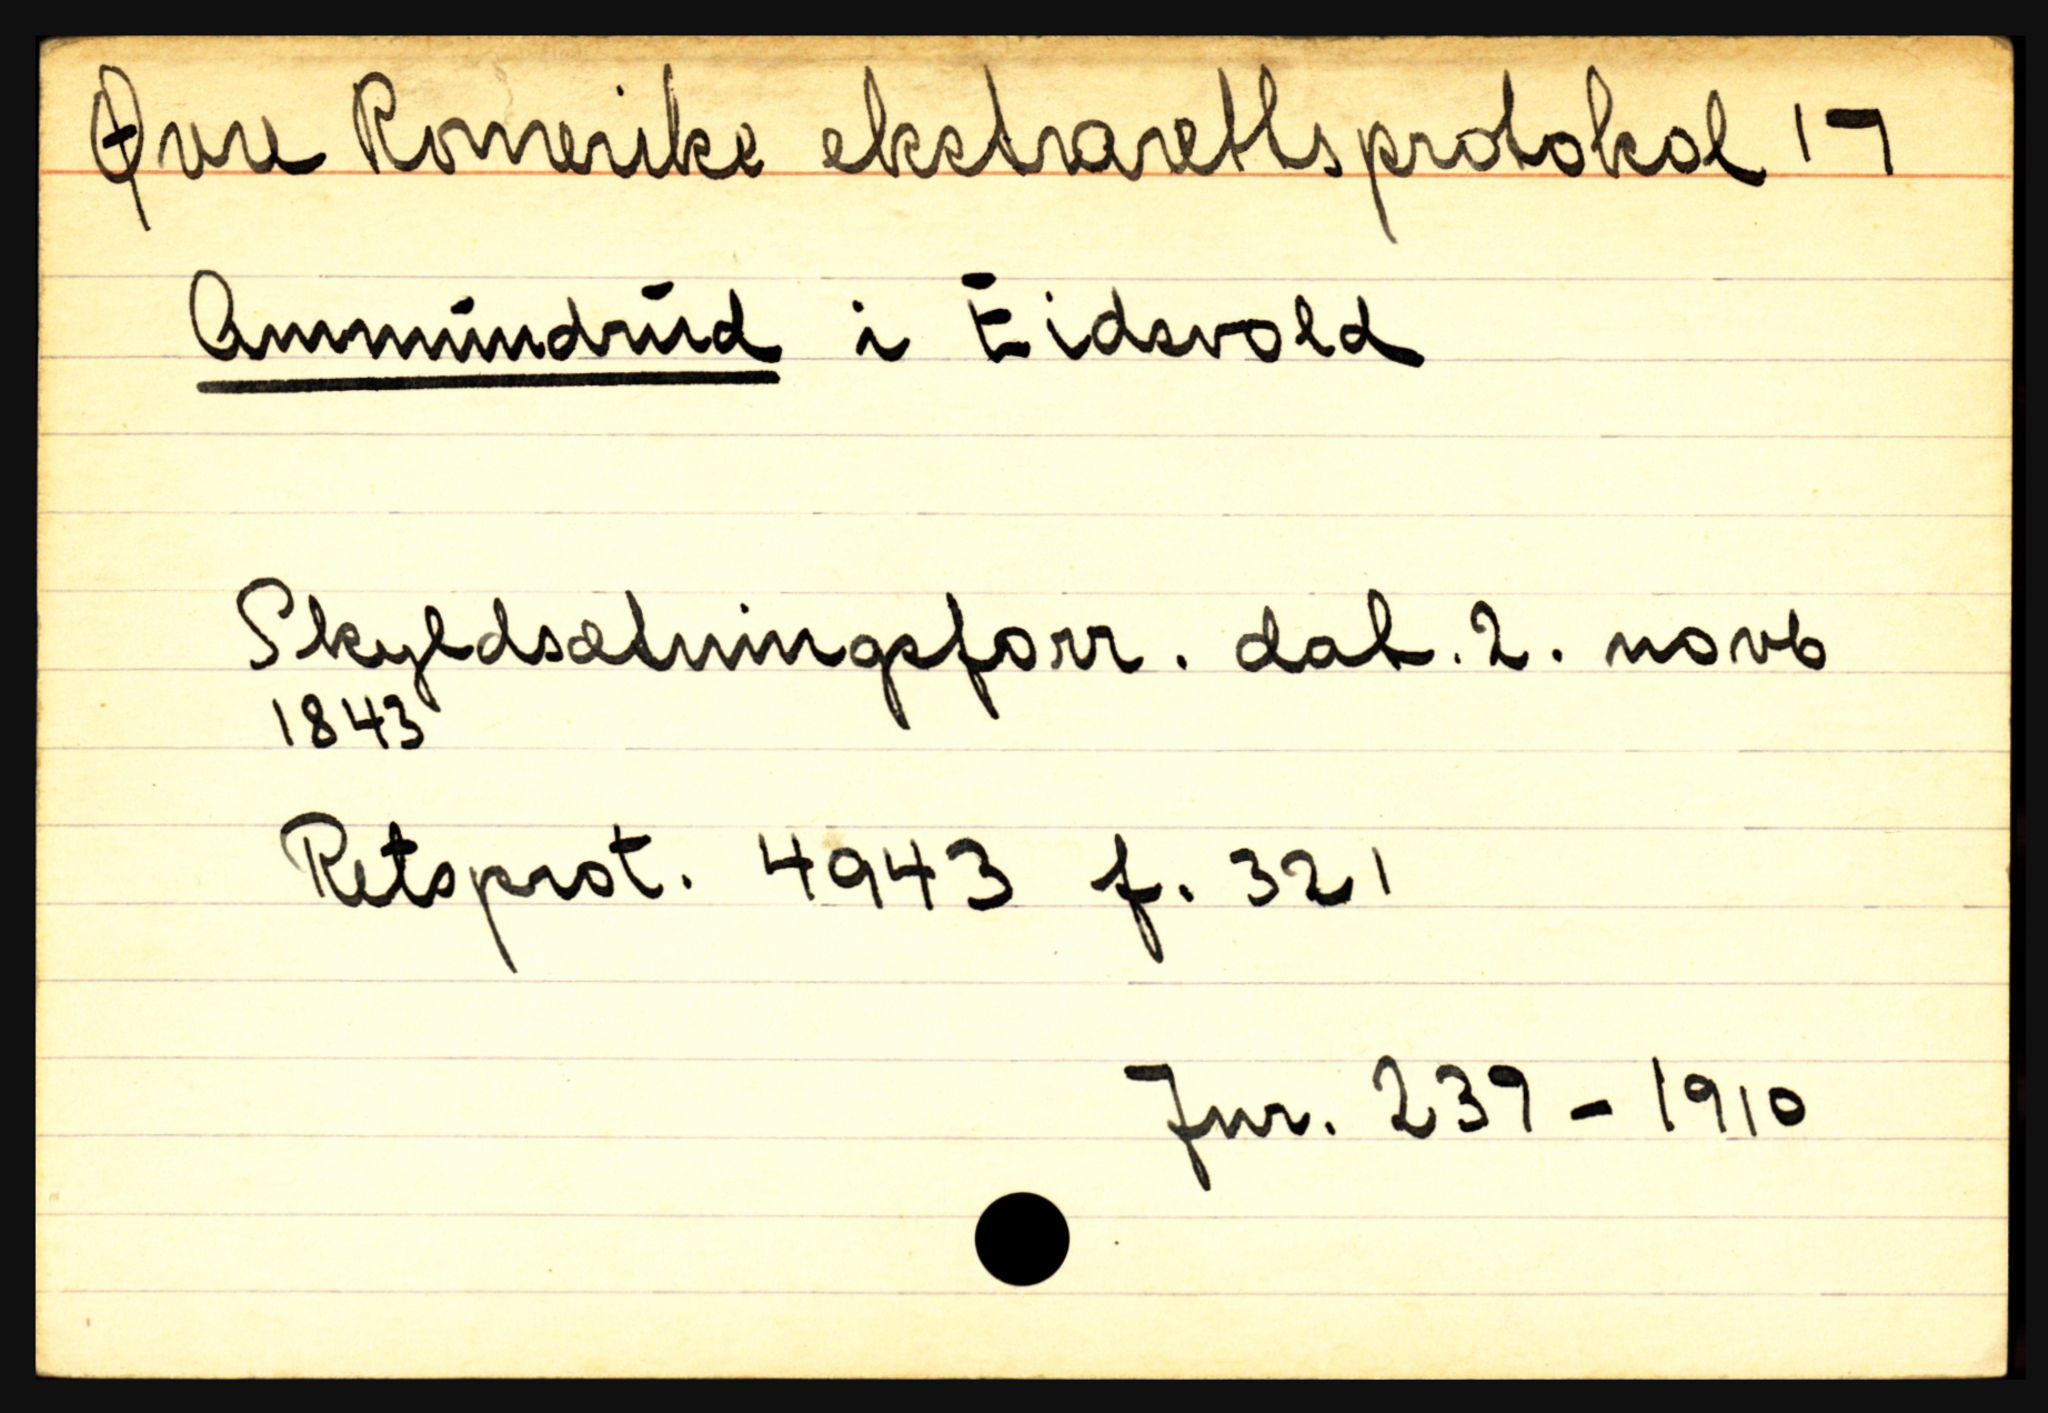 Øvre Romerike ekstrarettsprotokol 17
Ammundrud i Eidsvold
Skyldsætningsforr. dat. 2. novb
1843
Retsprot. 4943 f. 321
Jnr. 239 - 1910